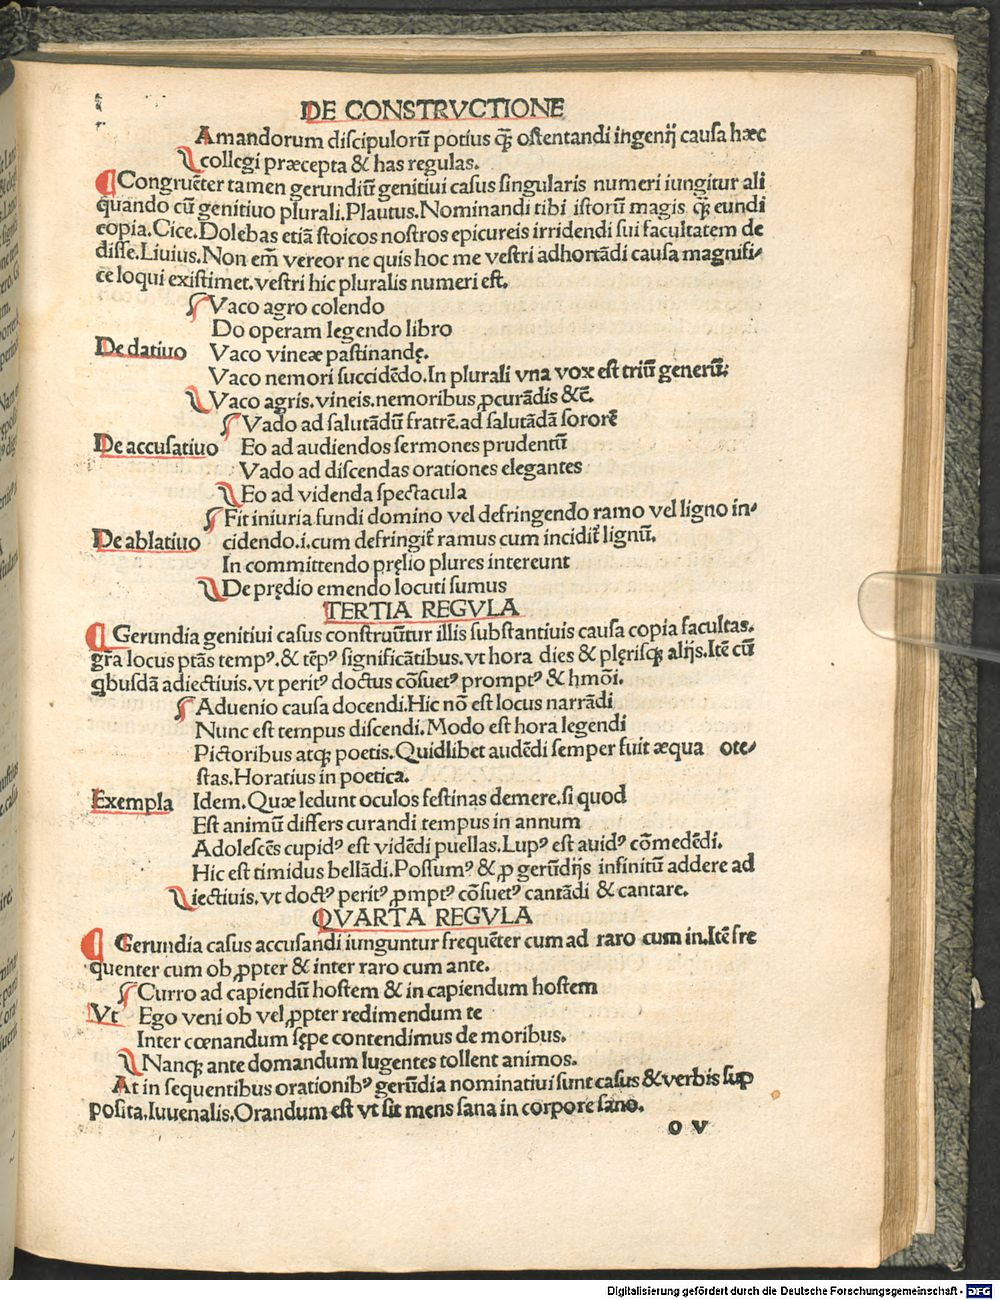 DE CONSTRVCTIONE
Amandorum diſcipulorū potius q̄ꝫ oſtentandi ingenij cauſa hæc
collegi præcepta & has regulas.
Congruēter tamen gerundiū genitiui caſus ſingularis numeri iungitur ali
quando cū genitiuo plurali.Plautus.Nominandi tibi iſtorū magis q̄ꝫ eundi
copia.Cice.Dolebas etiā ſtoicos noſtros epicureis irridendi ſui facultatem de
diſſe.Liuius.Non em̄ vereor ne quis hoc me veſtri adhortādi cauſa magnifi⸗
ce loqui exiſtimet.veſtri hic pluralis numeri eſt.
Vaco agro colendo
Do operam legendo libro
De datiuo Vaco vineæ paſtinandę.
Vaco nemori ſuccidēdo.In plurali vna vox eſt triū generū:
Vaco agris.vineis.nemoribus ꝓcurādis &c̄.
Vado ad ſalutādū fratrē.ad ſalutādā ſororē
De accuſatiuo Eo ad audiendos ſermones prudentū
Vado ad diſcendas orationes elegantes
Eo ad videnda ſpectacula
Fit iniuria fundi domino vel defringendo ramo vel ligno in⸗
De ablatiuo cidendo.i.cum defringit᷑ ramus cum incidit᷑ lignū.
In committendo pręlio plures intereunt
De prędio emendo locuti ſumus
TERTIA REGVLA
Gerundia genitiui caſus conſtruūtur illis ſubſtantiuis cauſa copia facultas.
gr̄a locus ptās tempꝰ.& tēpꝰ ſignificātibus.vt hora dies & plęriſqꝫ alijs.Itē cū
qbuſdā adiectiuis.vt peritꝰ doctus cōſuetꝰ promptꝰ & hmōi.
Aduenio cauſa docendi.Hic nō eſt locus narrādi
Nunc eſt tempus diſcendi.Modo eſt hora legendi
Pictoribus atqꝫ poetis.Quidlibet audēdi ſemper fuit æqua ote⸗
ſtas.Horatius in poetica.
Exempla Idem.Quæ ledunt oculos feſtinas demere.ſi quod
Eſt animū differs curandi tempus in annum
Adoleſcēs cupidꝰ eſt vidēdi puellas.Lupꝰ eſt auidꝰ cōmedēdi.
Hic eſt timidus bellādi.Poſſumꝰ & ꝓ gerūdijs infinitū addere ad
iectiuis.vt doctꝰ peritꝰ ꝓmptꝰ cōſuetꝰ cantādi & cantare.
QVARTA REGVLA
Gerundia caſus accuſandi iunguntur frequēter cum ad raro cum in.Itē fre
quenter cum ob ꝓpter & inter raro cum ante.
Curro ad capiendū hoſtem & in capiendum hoſtem
Vt Ego veni ob vel ꝓpter redimendum te
Inter cœnandum ſępe contendimus de moribus.
Nanqꝫ ante domandum lugentes tollent animos.
At in ſequentibus orationibꝰ gerūdia nominatiui ſunt caſus & verbis ſup
poſita.Iuuenalis.Orandum eſt vt ſit mens ſana in corpore ſano.
o v
Digitalisierung gefördert durch die Deutsche Forschungsgemeinschaft - DFG